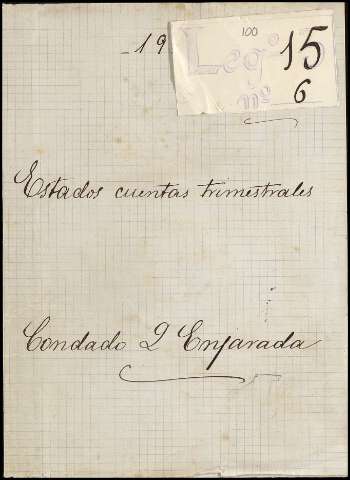 100
19
Legº 15
nº 6
Estados cuentas trimestrales
Condado
Enjarada